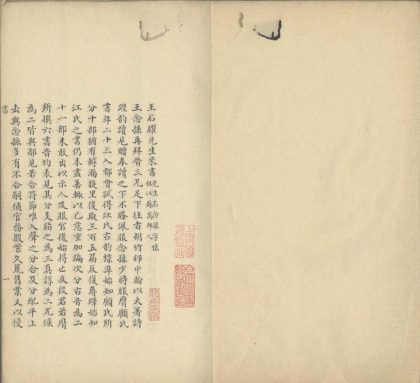 王石臞先生來書先生名念孫字懷
祖江蘇高郵人
王念孫再拜晉三兄足下往者胡竹邨中翰以大著詩
經韵讀見贈奉讀之下不勝佩服念孫少時服膺顧氏
書年二十三入都會試得江氏古韵標準始知顧氏所
分十部猶有罅漏旋里後取三百五篇反復尋繹始知
江氏之書仍未盡善輒以己意重加編次分古音為二
十一部未敢出以示人及服官後始得亡友段君若膺
所撰六書音均表見其分支脂之為三真諄為二尤侯
為二皆與鄙見若合符節唯入聲之分合及分配平上
去與念孫多有不合嗣值官務殷繁久荒舊業又以侵
書
一